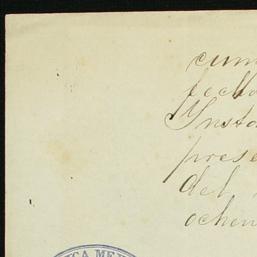 cum
fecha
Insta
prese
del
ochen
ICA MEX